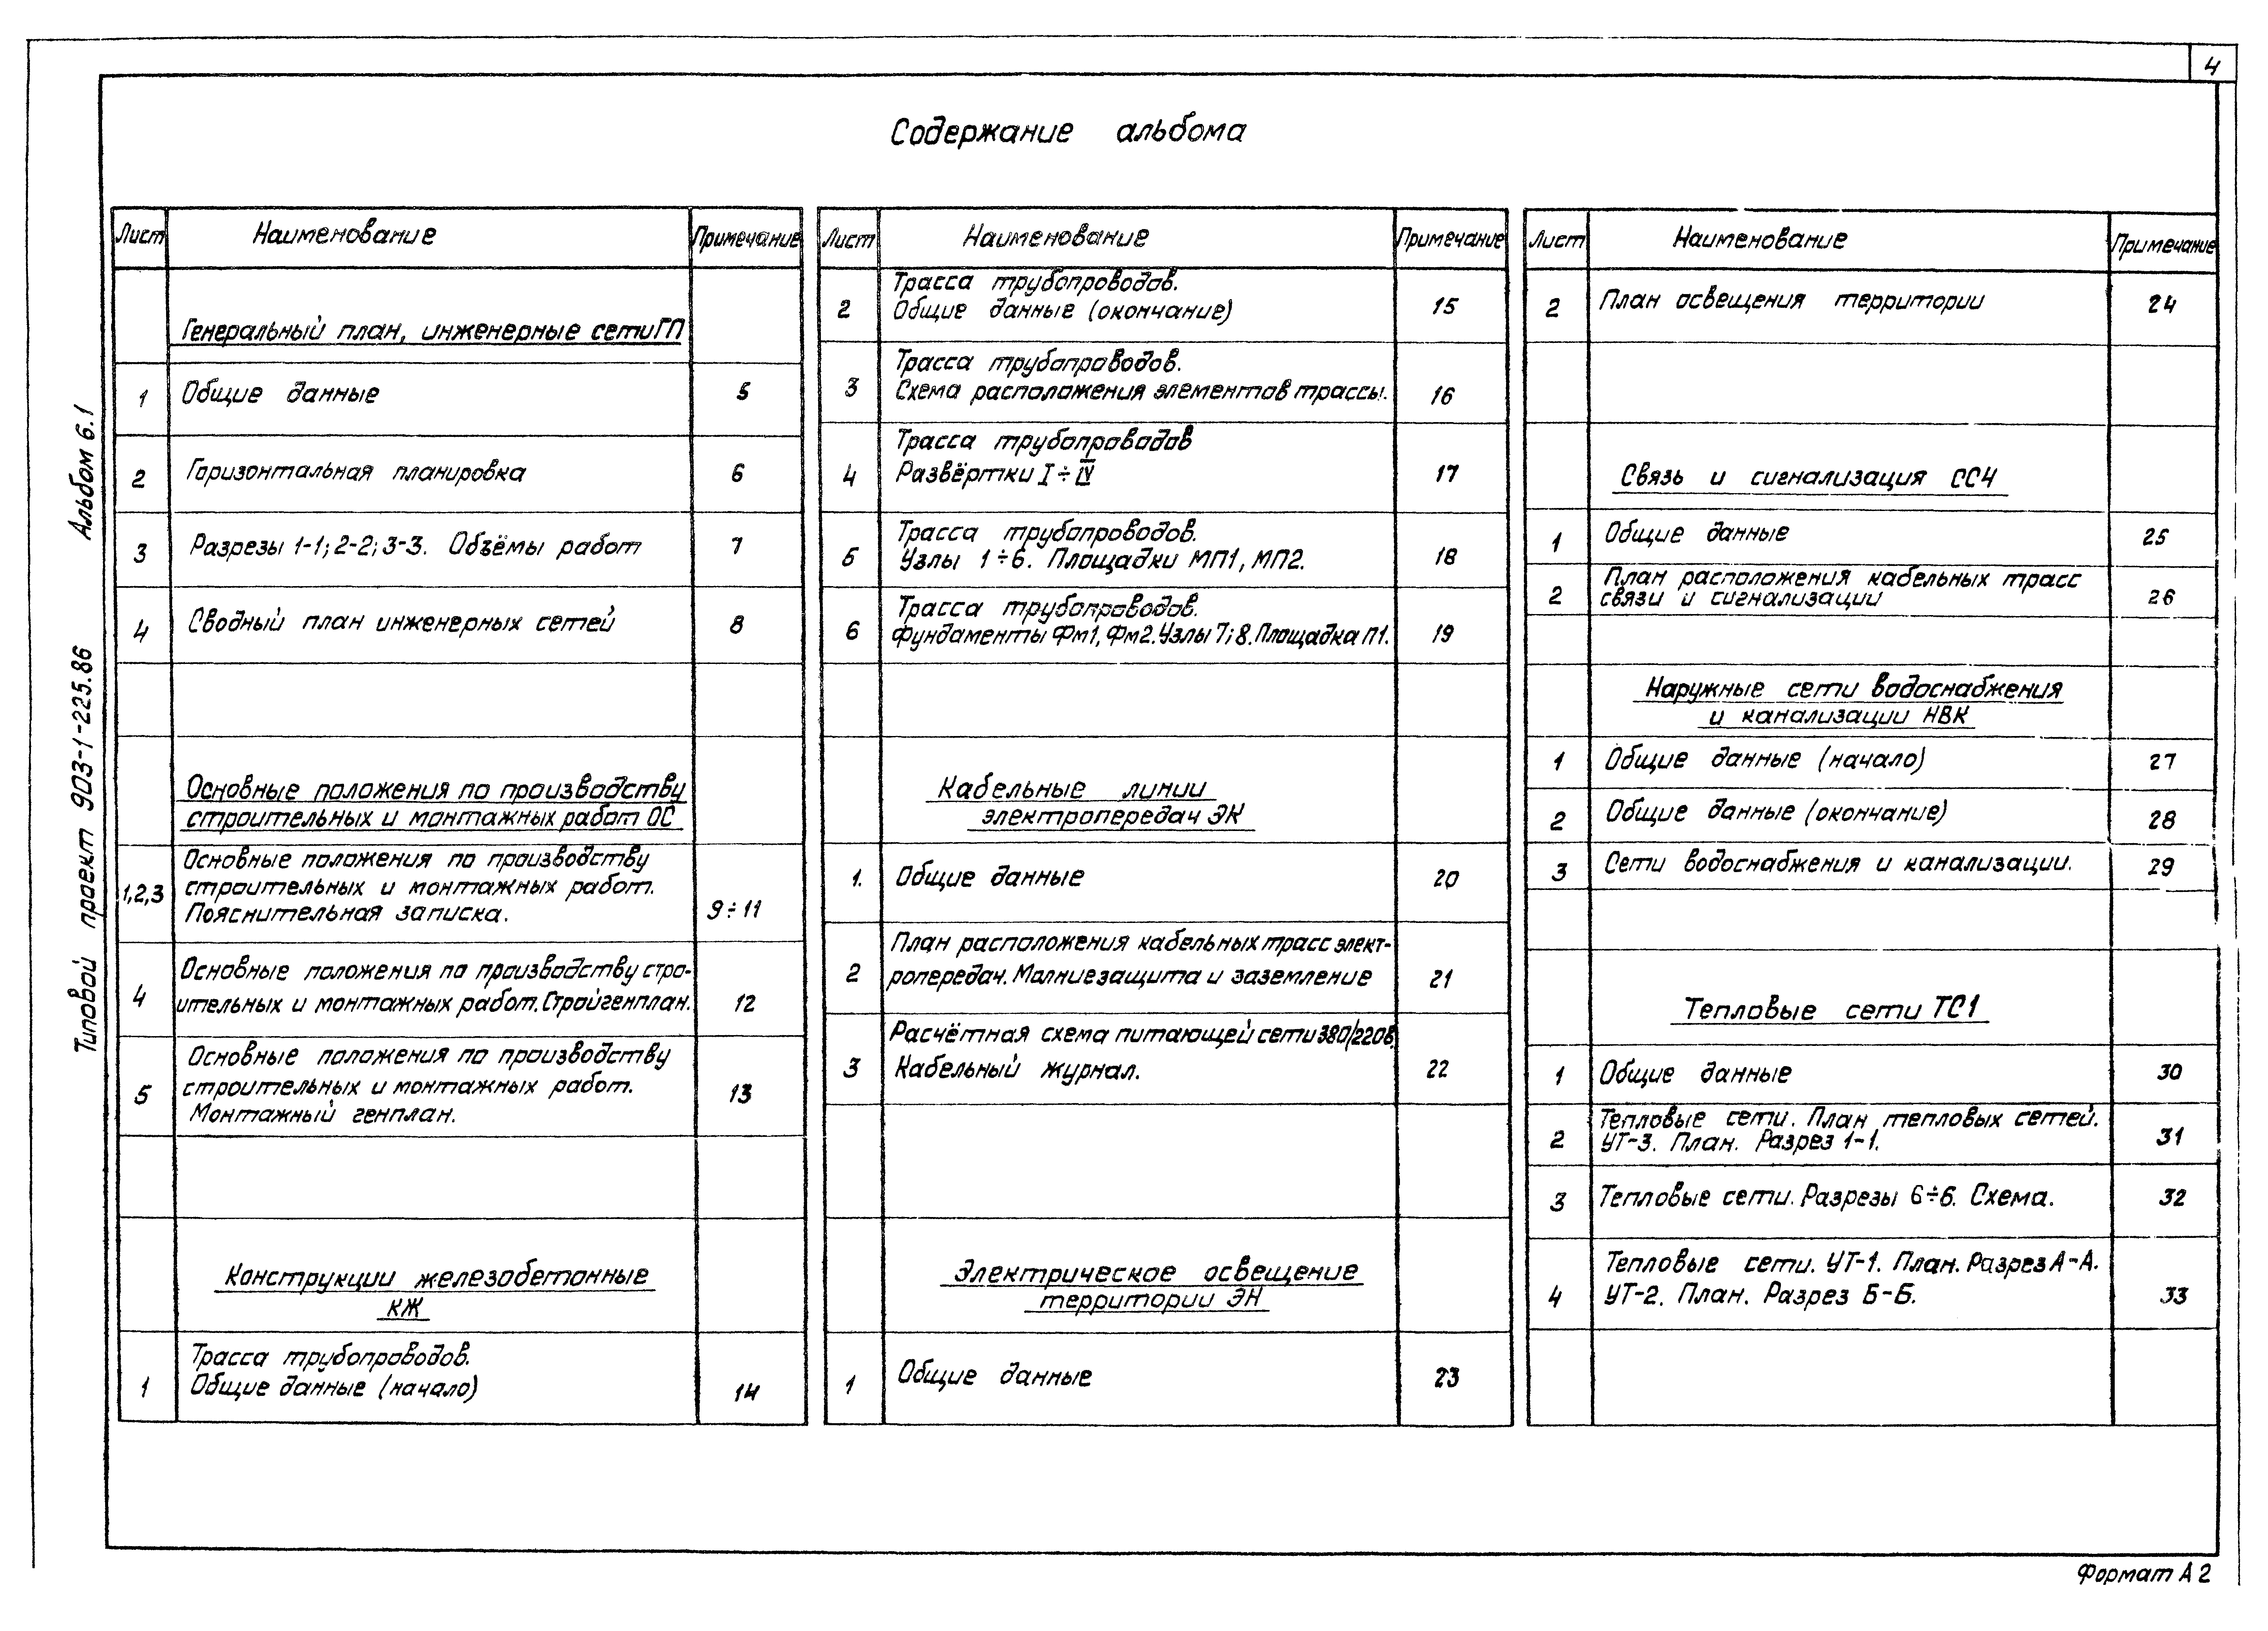 4
Содержание альбома
Типовой проект 903-1-225.86 Альбом 6.1
Лист Наименование Примечание
Генеральный план, инженерные сети ГП
1 Общие данные 5
2 Горизонтальная планировка 6
3 Разрезы 1-1; 2-2; 3-3. Объёмы работ 7
4 Сводный план инженерных сетей 8
Основные положения по производству
строительных и монтажных работ ОС
Основные положения по производству
1,2,3 строительных и монтажных работ.
Пояснительная записка. 9÷11
Основные положения по производству стро-
4 ительных и монтажных работ. Стройгенплан. 12
Основные положения по производству
5 строительных и монтажных работ. 13
Монтажный генплан.
Конструкции железобетонные
КЖ
Трасса трубопроводов.
1 Общие данные (начало) 14
Лист Наименование Примечание
Трасса трубопроводов.
2 Общие данные (окончание) 15
Трасса трубопроводов.
3 Схема расположения элементов трассы. 16
Трасса трубопроводов
4 Развёртки I÷IV 17
Трасса трубопроводов.
5 Узлы 1÷6. Площадки МП1, МП2. 18
Трасса трубопроводов.
6 Фундаменты Фм1, Фм2. Узлы 7; 8. Площадка П1. 19
Кабельные линии
электропередач ЭК
1. Общие данные 20
План расположения кабельных трасс элект-
2 ропередач. Молниезащита и заземление 21
Расчётная схема питающей сети 380/220В.
3 Кабельный журнал. 22
Электрическое освещение
территории ЭН
1 Общие данные 23
Лист Наименование Примечание
2 План освещения территории 24
Связь и сигнализация СС4
1 Общие данные 25
План расположения кабельных трасс
2 связи и сигнализации 26
Наружные сети водоснабжения
и канализации НВК
1 Общие данные (начало) 27
2 Общие данные (окончание) 28
3 Сети водоснабжения и канализации. 29
Тепловые сети ТС1
1 Общие данные 30
Тепловые сети. План тепловых сетей.
2 УТ-3. План. Разрез 1-1. 31
3 Тепловые сети. Разрезы 6÷6. Схема. 32
Тепловые сети. УТ-1. План. Разрез А-А.
4 УТ-2. План. Разрез Б-Б. 33
Формат А2